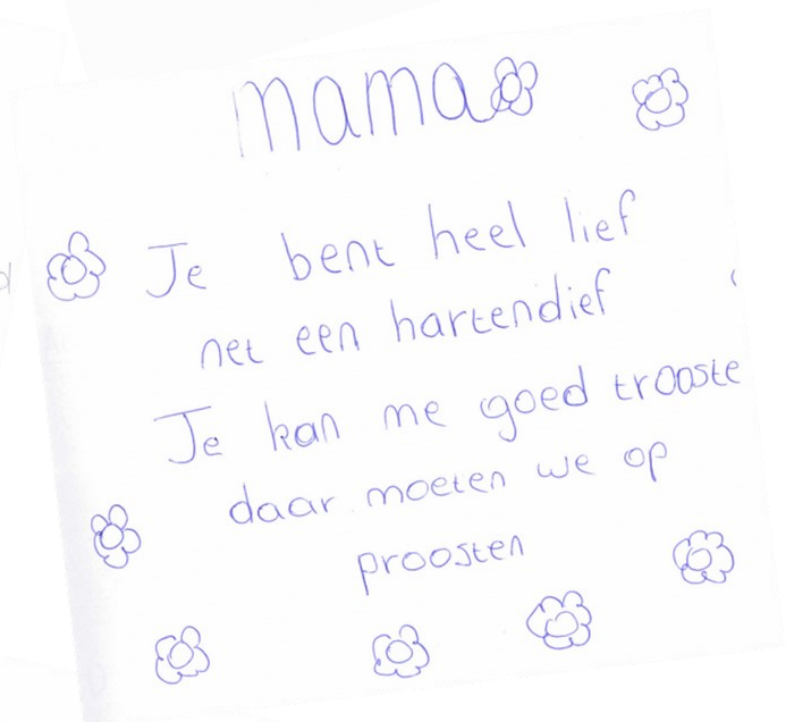 mama
Je bent heel lief
net een hartendief
Je kan me goed trooste
daar moeten we op
proosten